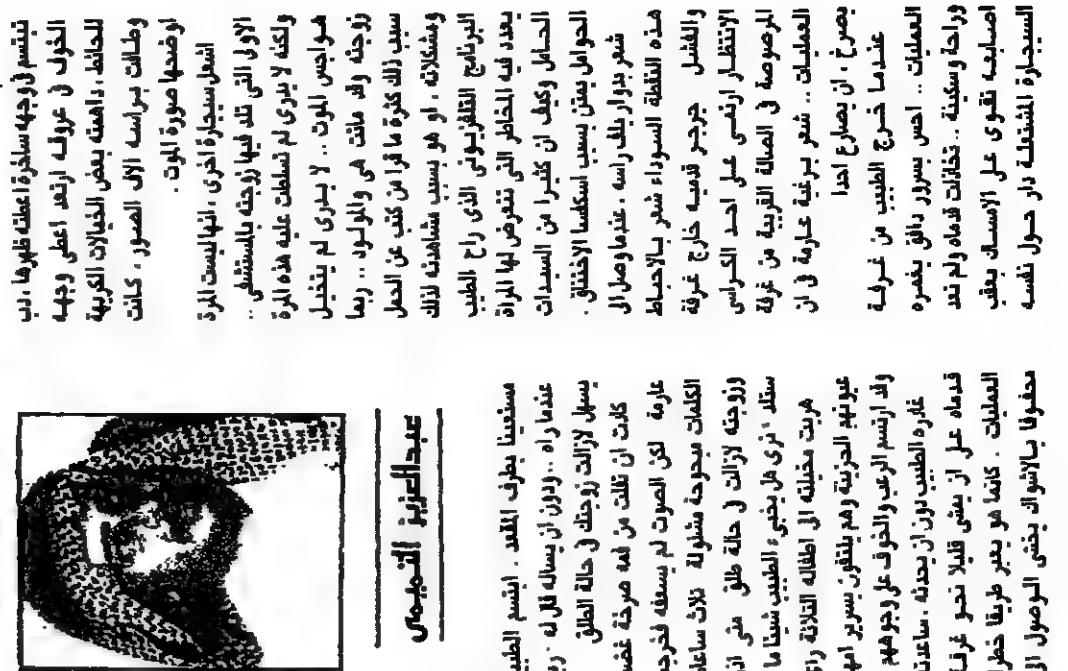 تبتسم في وجهه ساخرة اعطته ظهرها ، دب
الخوف في عروقه ارتعد اعطى وجهه
للحائط ، داهمته بعض الخيالات الكريهة
وطافت براسه الاف الصور ، كانت
اوضحها صورة الموت .
اشعل سيجارة اخرى ، انها ليست المرة
الاولى التي تلد فيها زوجته بالمستشفى ..
ولكنه لا يدرى لم تسلطت عليه هذه المرة
هواجس الموت .. لا يدرى لم يتخيل
زوجته وقد ماتت هي والمولود .. ربما
سبب ذلك كثرة ما قرا من كتب عن الحمل
ومشكلاته ، او هو بسبب مشاهدته لذلك
البرنامج التلفزيوني الذي راح الطبيب
يعدد فيه المخاطر التي تتعرض لها المراة
الحامل وكيف ان كثيرا من السيدات
الحوامل يمتن بسبب اسكلسا الاختناق .
شعر بدوار يلف راسه ، عندما وصل الى
هذه النقطة السوداء شعر بالاحباط
والفشل جرجر قدميه خارج غرفة
الانتظار ارتمى على احد الكراسي
المرصوصة في الصالة القريبة من غرفة
العمليات .. شعر برغبة عارمة في ان
يصرخ ، ان يصارع احدا
عندما خرج الطبيب من غرفة
العمليات .. احس بسرور دافق يغمره
وراحة وسكينة .. تخاذلت قدماه ولم تعد
اصابعه تقوى على الامساك بعقب
السيجارة المشتعلة دار حول نفسه
عبدالعزيز التميمي
مستعينا بطرف المقعد . ابتسم الطبيب
عندما راه .. ودون ان يساله قال له .
يسهل لازالت زوجتك في حالة الطلق
كادت ان تفلت من فمه صرخة
عارمة لكن الصوت لم يسعفه
الكلمات مبحوحة مشلولة ثلاث
وزوجته لازالت في حالة طلق متى
ستلد ؟ ترى هل يخبىء الطبيب شيئا ما
هربت مخيلته الى اطفاله الثلاثة
عيونهم الحزينة وهم يلتفون بسرير
وقد ارتسم الرعب والخوف على وجوههم
غادره الطبيب دون ان يحدثه ،
قدماه على ان يمشي قليلا نحو
العمليات . كانما هو يعبر طريقا
محفوفا بالاشواك يخشى الوصول